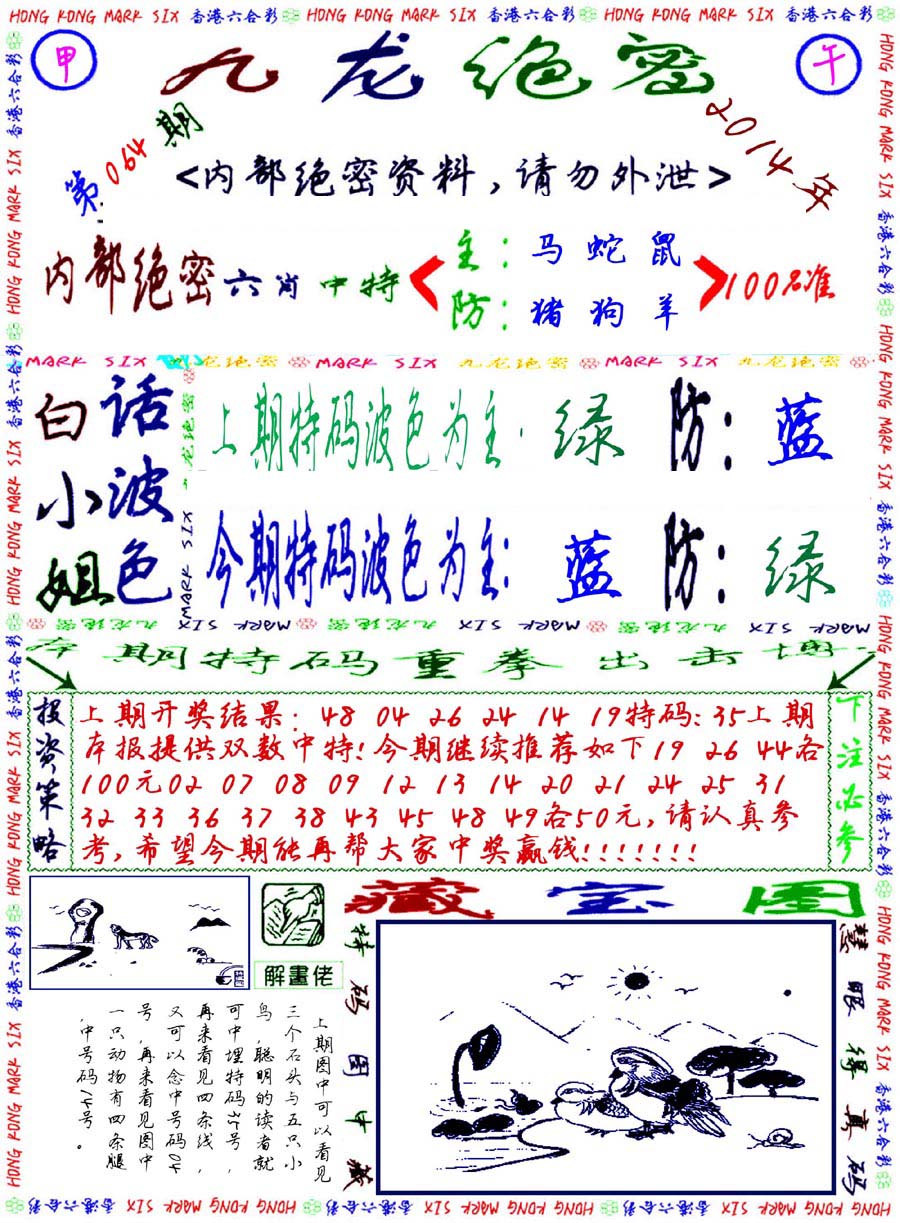 HONG KONG MARK SIX 香港六合彩 HONG KONG MARK SIX 香港六合彩 HONG KONG MARK SIX 香港六合彩
甲
九龙绝密
午
第064期
2014年
<内部绝密资料，请勿外泄>
内部绝密六肖中特
主：马蛇鼠
防：猪狗羊
100%准
MARK SIX 九龙绝密 MARK SIX 九龙绝密 MARK SIX 九龙绝密
白小姐
话波色
上期特码波色为主：绿 防：蓝
今期特码波色为主：蓝 防：绿
九龙绝密 MARK SIX 九龙绝密 MARK SIX 九龙绝密 MARK SIX
本期特码重拳出击博
投资策略
上期开奖结果：48 04 26 24 14 19特码：35上期
本报提供双数中特！今期继续推荐如下19 26 44各
100元02 07 08 09 12 13 14 20 21 24 25 31
32 33 36 37 38 43 45 48 49各50元，请认真参
考，希望今期能再帮大家中奖赢钱！！！！！！！
下注必参
藏宝图
解畫佬
上期图中可以看见
三个石头与五只小
鸟，聪明的读者就
可中埋特码35号，
再来看见四条线，
又可以念中号码40
号，再来看见图中
一只动物有四条腿
，中号码14号。
特码图中藏
慧眼缘真码
HONG KONG MARK SIX 香港六合彩 HONG KONG MARK SIX 香港六合彩 HONG KONG MARK SIX 香港六合彩